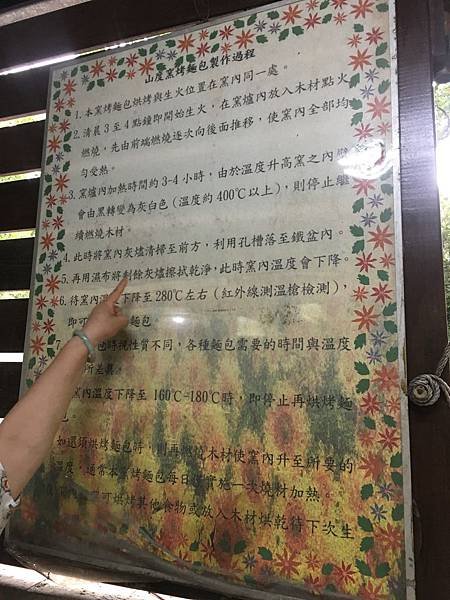 山度窯烤麵包製作過程
1. 本窯烤麵包烘烤與生火位置在窯內同一處。
2. 清晨3至4點鐘即開始生火,在窯爐內放入木材點火
燃燒,先由前端燃燒逐次向後面推移,使窯內全部均
勻受熱。
3. 窯爐內加熱時間約3-4小時,由於溫度升高窯之內壁
會由黑轉變為灰白色(溫度約400℃以上),則停止繼
續燃燒木材。
4. 此時將窯內灰燼清掃至前方,利用孔槽落至鐵盆內。
5. 再用濕布將剩餘灰燼擦拭乾淨,此時窯內溫度會下降。
6. 待窯內溫 下降至280℃左右(紅外線測溫槍檢測),
即可 麵包
7 時視性質不同,各種麵包需要的時間與溫度
所差異。
窯內溫度下降至160℃-180℃時,即停止再烘烤麵
包。
如還須烘烤麵包時,則再燃燒木材使窯內升至所要的
溫度,通常本窯烤麵包每日僅實施一次燒材加熱。
可烘烤其他食物或放入木材烘乾待下次生